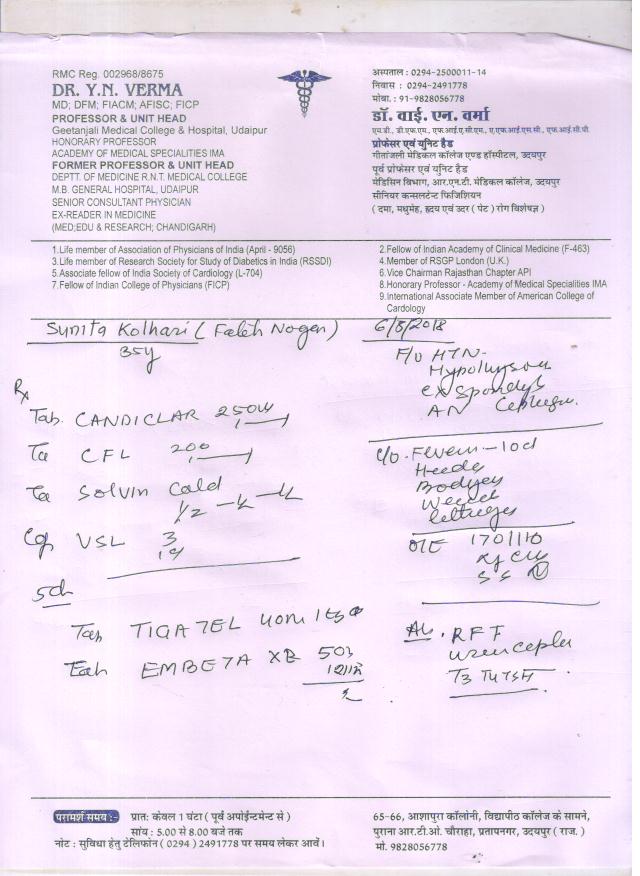 RMC Reg. 002968/8675
DR. Y.N. VERMA
MD; DFM; FIACM; AFISC; FICP
PROFESSOR & UNIT HEAD
Geetanjali Medical College & Hospital, Udaipur
HONORARY PROFESSOR
ACADEMY OF MEDICAL SPECIALITIES IMA
FORMER PROFESSOR & UNIT HEAD
DEPTT. OF MEDICINE R.N.T. MEDICAL COLLEGE
M.B. GENERAL HOSPITAL, UDAIPUR
SENIOR CONSULTANT PHYSICIAN
EX-READER IN MEDICINE
(MED;EDU & RESEARCH; CHANDIGARH)
अस्पताल : 0294-2500011-14
निवास : 0294-2491778
मोबा. : 91-9828056778
डॉ. वाई. एन. वर्मा
एम.डी., डी.एफ.एम., एफ.आई.ए.सी.एम., ए.एफ.आई.एस.सी., एफ.आई.सी.पी.
प्रोफेसर एवं यूनिट हैड
गीतांजली मेडिकल कॉलेज एण्ड हॉस्पीटल, उदयपुर
पूर्व प्रोफेसर एवं यूनिट हैड
मेडिसिन विभाग, आर.एन.टी. मेडिकल कॉलेज, उदयपुर
सीनियर कन्सलटेन्ट फिजिशियन
( दमा, मधुमेह, ह्रदय एवं उदर ( पेट ) रोग विशेषज्ञ )
1.Life member of Association of Physicians of India (April - 9056)
2.Fellow of Indian Academy of Clinical Medicine (F-463)
3.Life member of Research Society for Study of Diabetics in India (RSSDI)
4.Member of RSGP London (U.K.)
5.Associate fellow of India Society of Cardiology (L-704)
6.Vice Chairman Rajasthan Chapter API
7.Fellow of Indian College of Physicians (FICP)
8.Honorary Professor - Academy of Medical Specialities IMA
9.International Associate Member of American College of
Cardology
Sunita Kolhari ( Fateh Nagar )
6/8/2018
35y
F/o HTN-
Rx
Tab. CANDICLAR 250
CFL 200
SOLVIN Cold
1/2
VSL 3
C/o. Fever - 10d
O/E 170/110
5d
Tab TIGATEL 40
EMBETA XR 50
RFT
T3 T4 TSH
परामर्श समय :-
प्रात: केवल 1 घंटा ( पूर्व अपोईन्टमेन्ट से )
सांय : 5.00 से 8.00 बजे तक
नोट : सुविधा हेतु टेलिफोन ( 0294 ) 2491778 पर समय लेकर आवें।
65-66, आशापुरा कॉलोनी, विद्यापीठ कॉलेज के सामने,
पुराना आर.टी.ओ. चौराहा, प्रतापनगर, उदयपुर ( राज. )
मो. 9828056778